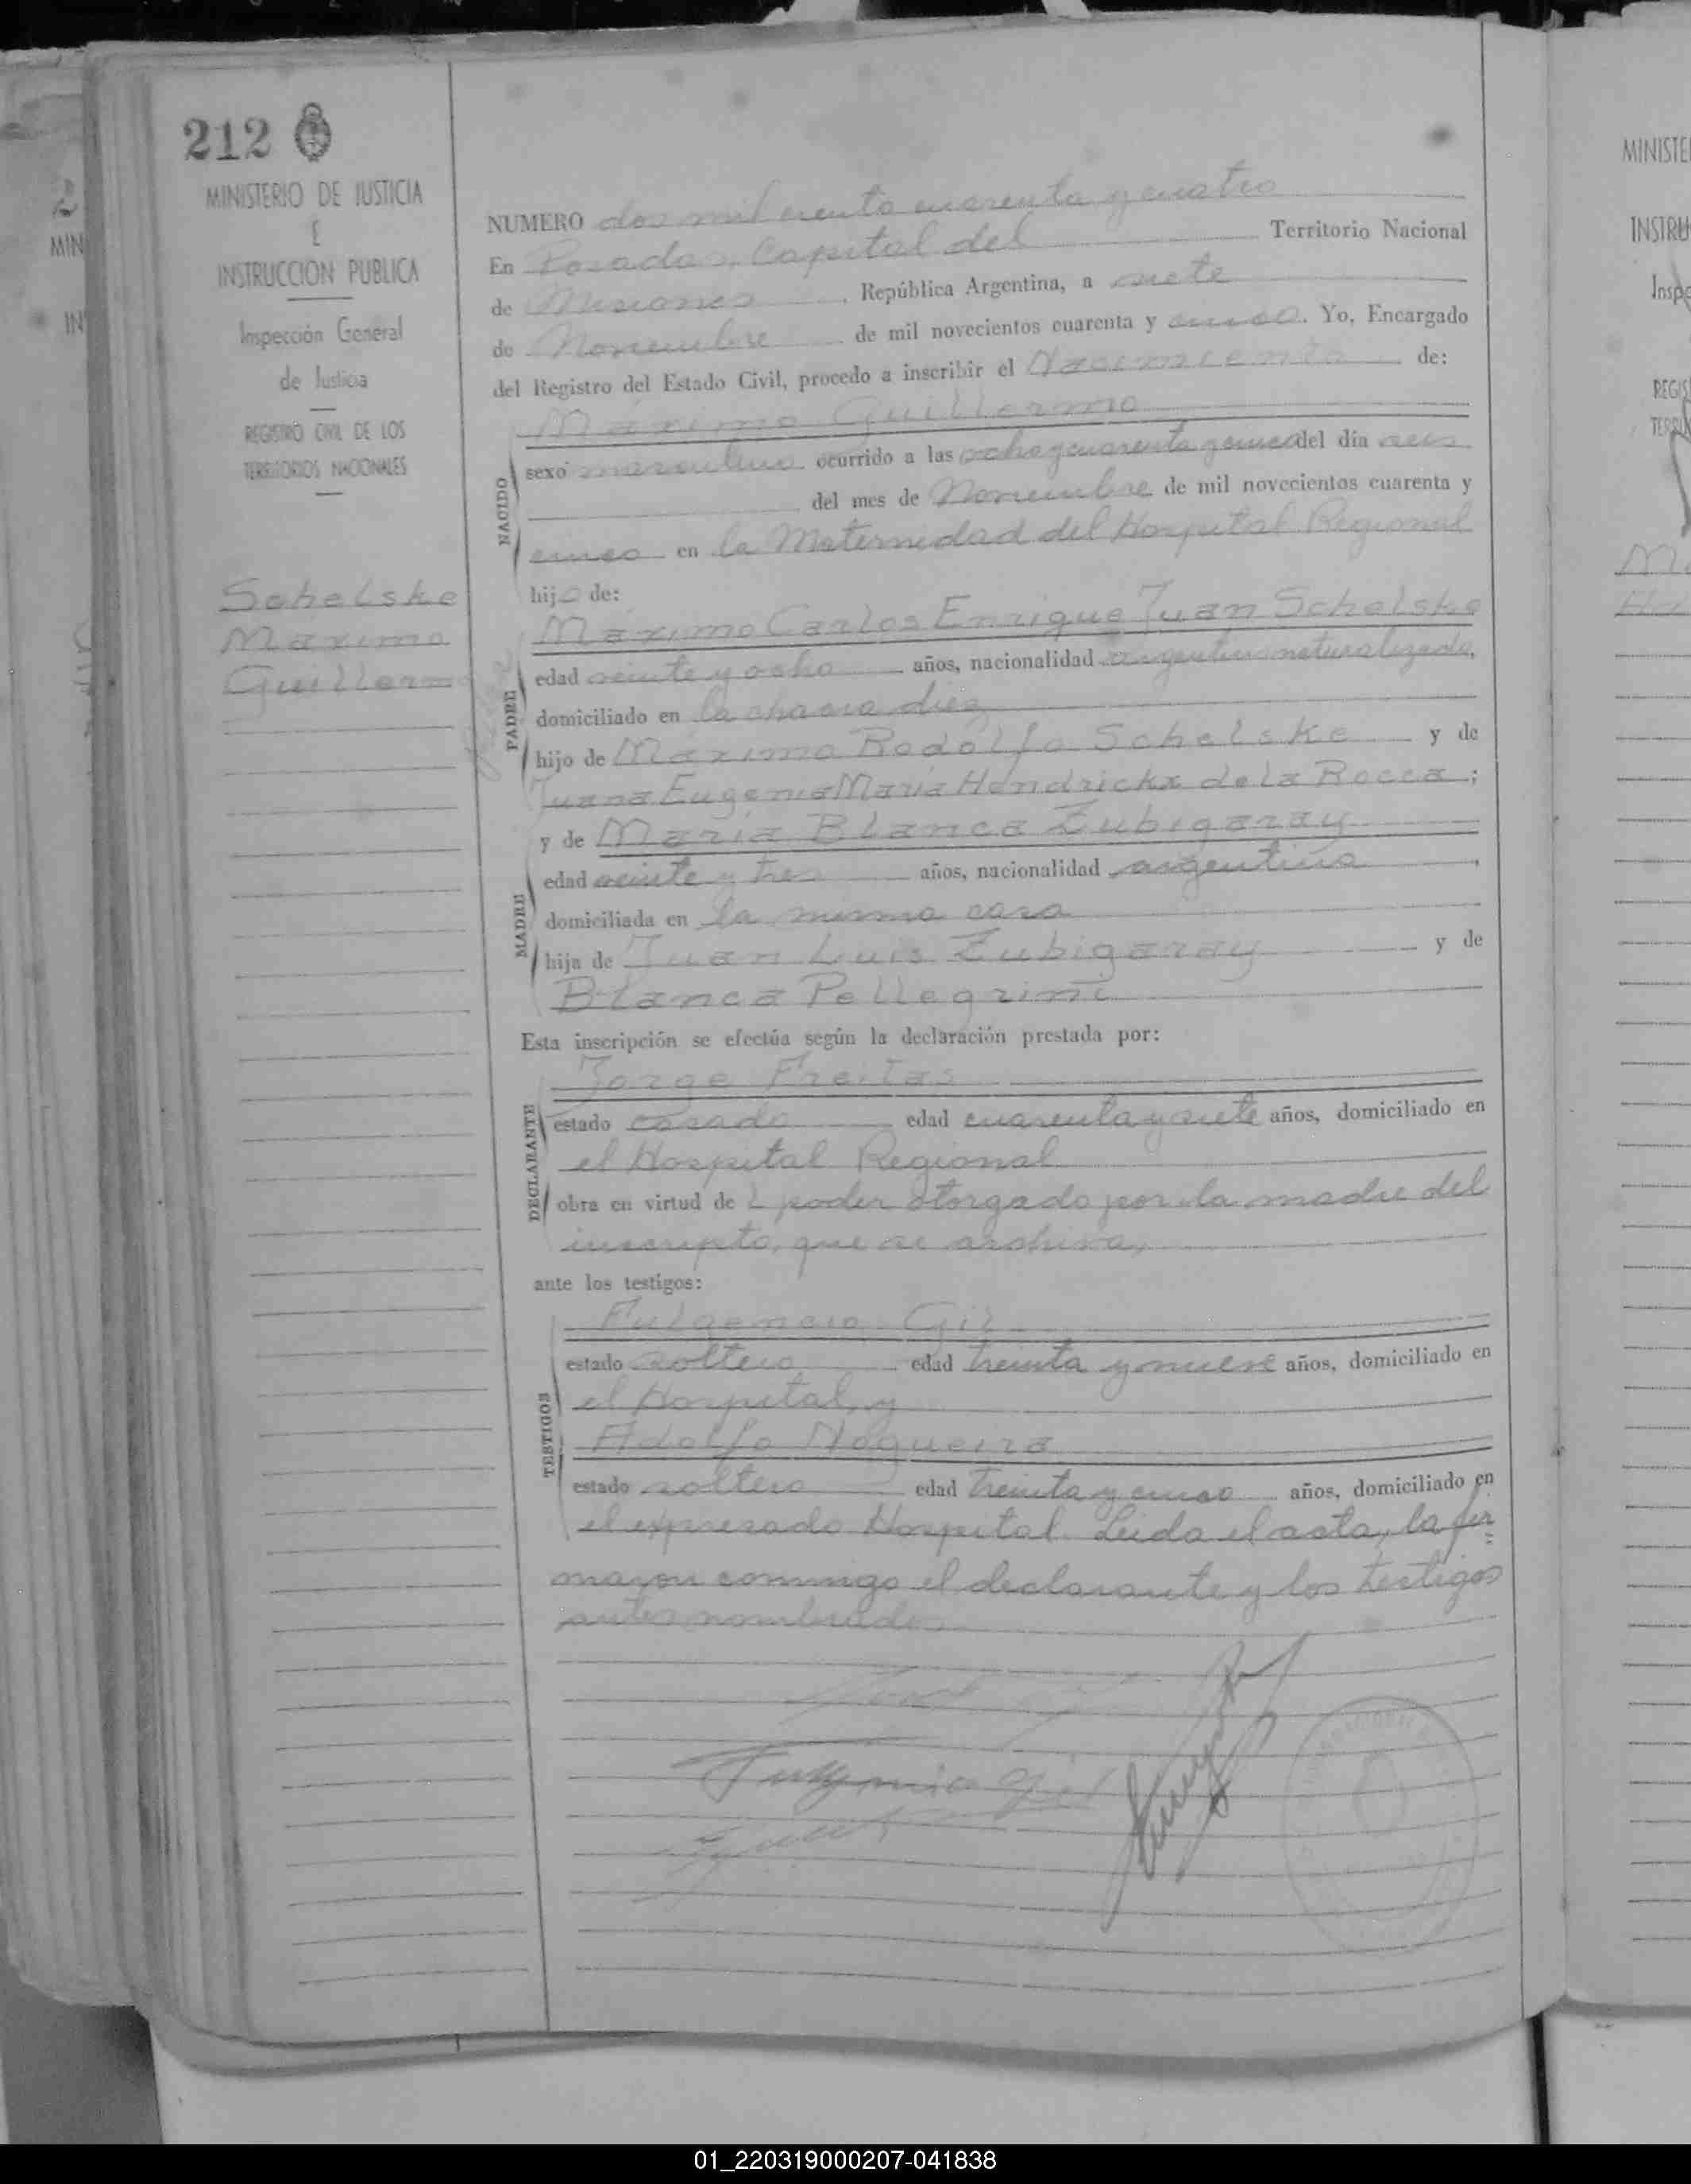 212
MINISTERIO DE JUSTICIA
E
INSTRUCCION PUBLICA
Inspección General
de Justicia
REGISTRO CIVIL DE LOS
TERRITORIOS NACIONALES
Schelske
Maximo
Guillermo
NUMERO dos mil ciento cuarenta y cuatro
En Posadas, Capital del Territorio Nacional
de Misiones, República Argentina, a siete
de Noviembre de mil novecientos cuarenta y cinco. Yo, Encargado
del Registro del Estado Civil, procedo a inscribir el Nacimiento de:
Máximo Guillermo
NACIDO
sexo masculino ocurrido a las ocho y cuarenta y cinco del día seis
del mes de Noviembre de mil novecientos cuarenta y
cinco en la Maternidad del Hospital Regional
hijo de:
Máximo Carlos Enrique Juan Schelske
PADRE
edad veinte y ocho años, nacionalidad argentino naturalizado,
domiciliado en la chacra diez
hijo de Máximo Rodolfo Schelske y de
Juana Eugenia María Hendrickx de la Rocca;
y de María Blanca Zubigaray
MADRE
edad veinte y tres años, nacionalidad argentina,
domiciliada en la misma casa
hija de Juan Luis Zubigaray y de
Blanca Pellegrini
Esta inscripción se efectúa según la declaración prestada por:
Jorge Freitas
DECLARANTE
estado casado edad cuarenta y siete años, domiciliado en
el Hospital Regional
obra en virtud de poder otorgado por la madre del
inscripto, que se archiva,
ante los testigos:
Fulgencio Gil
TESTIGOS
estado soltero edad treinta y nueve años, domiciliado en
el Hospital, y
Adolfo Nogueira
estado soltero edad treinta y cinco años, domiciliado en
el expresado Hospital. Leida el acta, la fir=
maron conmigo el declarante y los testigos
antes nombrados
Fulgencio Gil
MINISTE
INSTRU
Inspe
REGIS
01_220319000207-041838